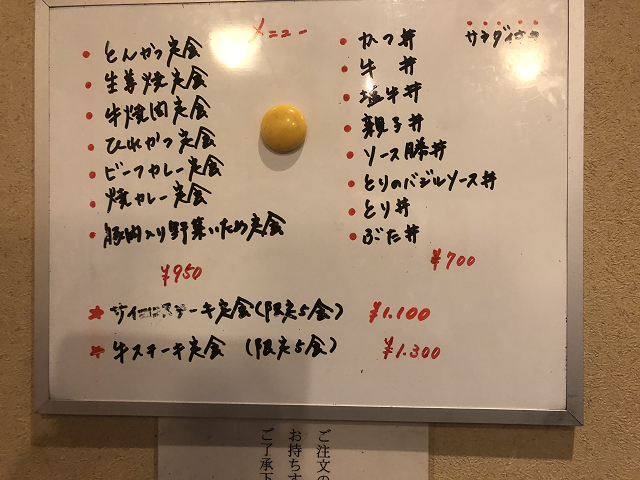 メニュー
とんかつ定食
生姜焼定食
牛焼肉定食
ひれかつ定食
ビーフカレー定食
焼カレー定食
豚肉入り野菜いため定食
¥950
かつ丼
牛丼
塩牛丼
親子丼
ソース勝丼
とりのバジルソース丼
とり丼
ぶた丼
¥700
サイコロステーキ定食(限定5食) ¥1.100
牛ステーキ定食 (限定5食) ¥1.300
ご注文の
お持ちす
ご了承下